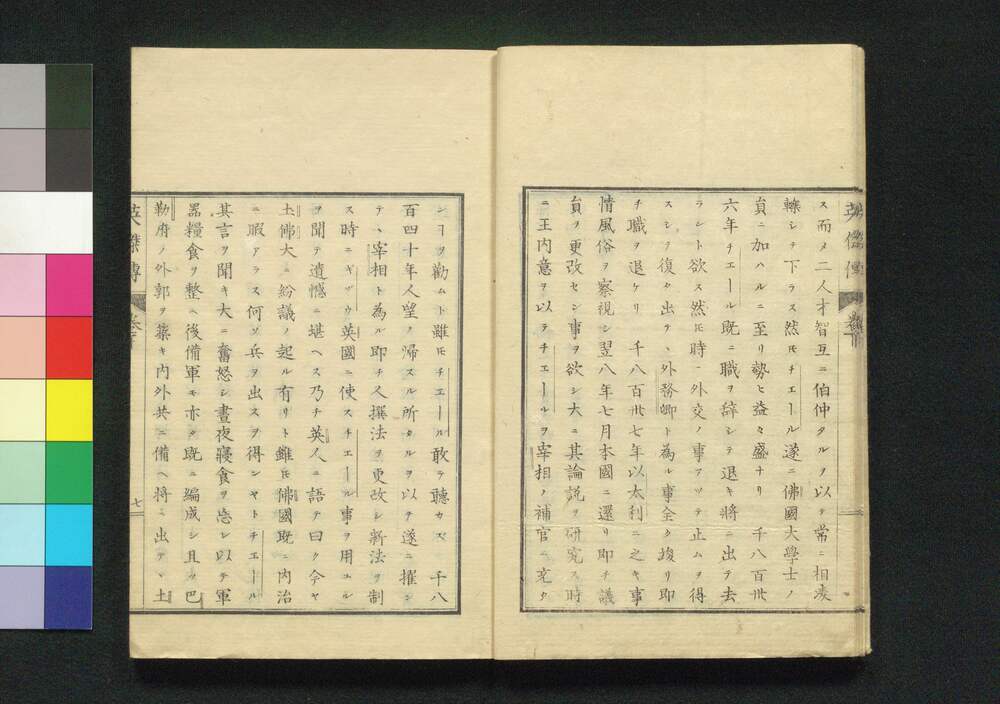 ス而メ二人才智互ニ伯仲タルヲ以テ常ニ相凌
轢シテ下ラス然㪽チエール遂ニ佛國大學士ノ
員ニ加ハルニ至リ勢ヒ益々盛ナリ 千八百卅
六年チエール既ニ職ヲ辞シテ退キ將ニ出テ去
ラント欲ス然㪽時ニ外交ノ事アツテ止ムヲ得
スシヲ復タ出テ、外務卿ト為ル事全ク竣リ即
チ職ヲ退ケリ 千八百卅七年以太利ニ之キ事
情風俗ヲ察視シ翌八年七月本國ニ還リ即チ議
員ヲ更改セン事ヲ欲シ大ニ其論説ヲ研究ス時
ニ王内意ヲ以テチエールヲ宰相ノ補官ニ充タ
シヿヲ勸ムト雖㪽チエール敢テ聽カズ 千八
百四十年人望ノ帰スル所タルヲ以テ遂ニ擢ン
テ、宰相ト為ル即チ人撰法ヲ更改シ新法ヲ制
ス時ニギゾウ英國ニ使スチエール事ヲ用ユル
ヲ聞テ遺憾ニ堪ヘス乃チ英人ニ語テ曰ク今ヤ
土佛大ニ紛議ノ起ル有リト雖㪽佛國既ニ内治
ニ暇アラス何ソ兵ヲ出スヲ得ンヤトチエール
其言ヲ聞キ大ニ奮怒シ晝夜寢食ヲ忘レ以テ軍
器糧食ヲ整ヘ後備軍モ亦タ既ニ編成シ且ツ巴
勒府ノ外郭ヲ築キ内外共ニ備ヘ將ニ出テヽ土
英傑傳 卷下 七